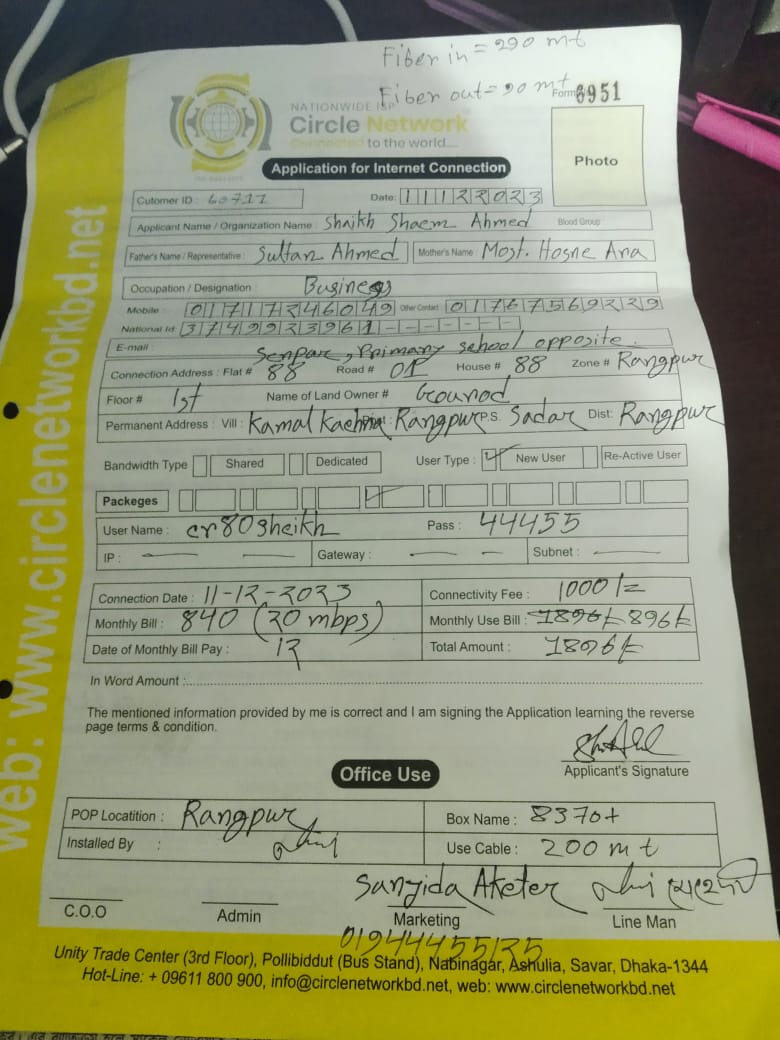 Fiber in = 290 mt
Fiber out = 90 mt
Form 6951
NATIONWIDE ISP
Circle Network
Connected to the world....
Application for Internet Connection
Photo
Cutomer ID : 60711
Date: 11122023
Applicant Name / Organization Name : Shaikh Shaem Ahmed Blood Group
Father's Name / Representative : Sultan Ahmed Mother's Name : Most. Hosne Ara
Occupation / Designation : Business
Mobile : 01717246049 Other Contact 01767569229
National Id: 3749923961
E-mail :
Senpar, Primary school opposite.
Connection Address : Flat # 88 Road # 01 House # 88 Zone # Rangpur
Floor # 1st Name of Land Owner # Grounod
Permanent Address : Vill : Kamal Kachna Rangpur P.S. Sadar Dist: Rangpur
Bandwidth Type Shared Dedicated User Type : New User Re-Active User
Packeges
User Name : cr80sheikh Pass : 44455
IP : Gateway : Subnet :
Connection Date : 11-12-2023 Connectivity Fee : 1000/=
Monthly Bill : 840 (20 mbps) Monthly Use Bill : 896
Date of Monthly Bill Pay : 12 Total Amount : 1896
In Word Amount :
The mentioned information provided by me is correct and I am signing the Application learning the reverse
page terms & condition.
Applicant's Signature
Office Use
POP Locatition : Rangpur Box Name : 8370+
Installed By : Use Cable : 200 mt
Sanjida Akter
C.O.O Admin Marketing Line Man
Unity Trade Center (3rd Floor), Pollibiddut (Bus Stand), Nabinagar, Ashulia, Savar, Dhaka-1344
Hot-Line: + 09611 800 900, info@circlenetworkbd.net, web: www.circlenetworkbd.net
web: www.circlenetworkbd.net